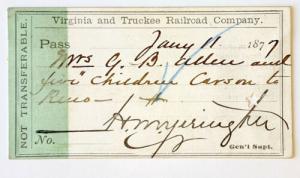 Virginia and Truckee Railroad Company.
NOT TRANSFERABLE.
Pass Jany 11 1877
Mrs C. B. Allen and
five Children Carson to
Reno—
H M Yerington
No. Gen'l Supt.